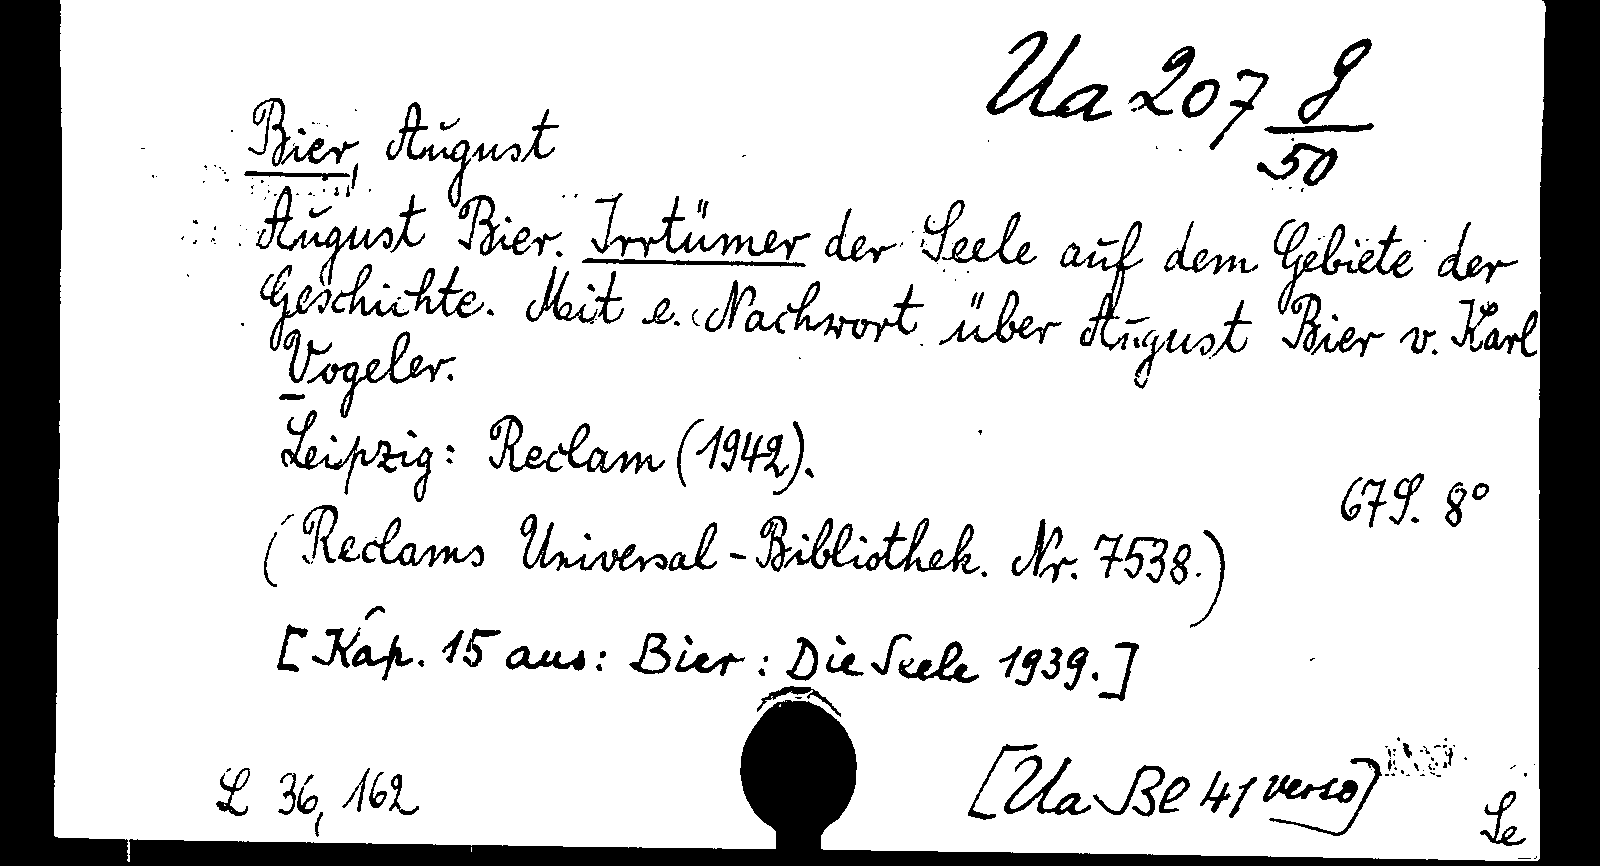 Ua 207 g/50
Bier, August
August Bier. Irrtümer der Seele auf dem Gebiete der
Geschichte. Mit e. Nachwort über August Bier v. Karl
Vogeler.
Leipzig: Reclam (1942).
67 S. 8°
(Reclams Universal-Bibliothek. Nr. 7538.)
[Kap. 15 aus: Bier: Die Seele 1939.]
L 36, 162
[Ua Bl 41 verso]
Se